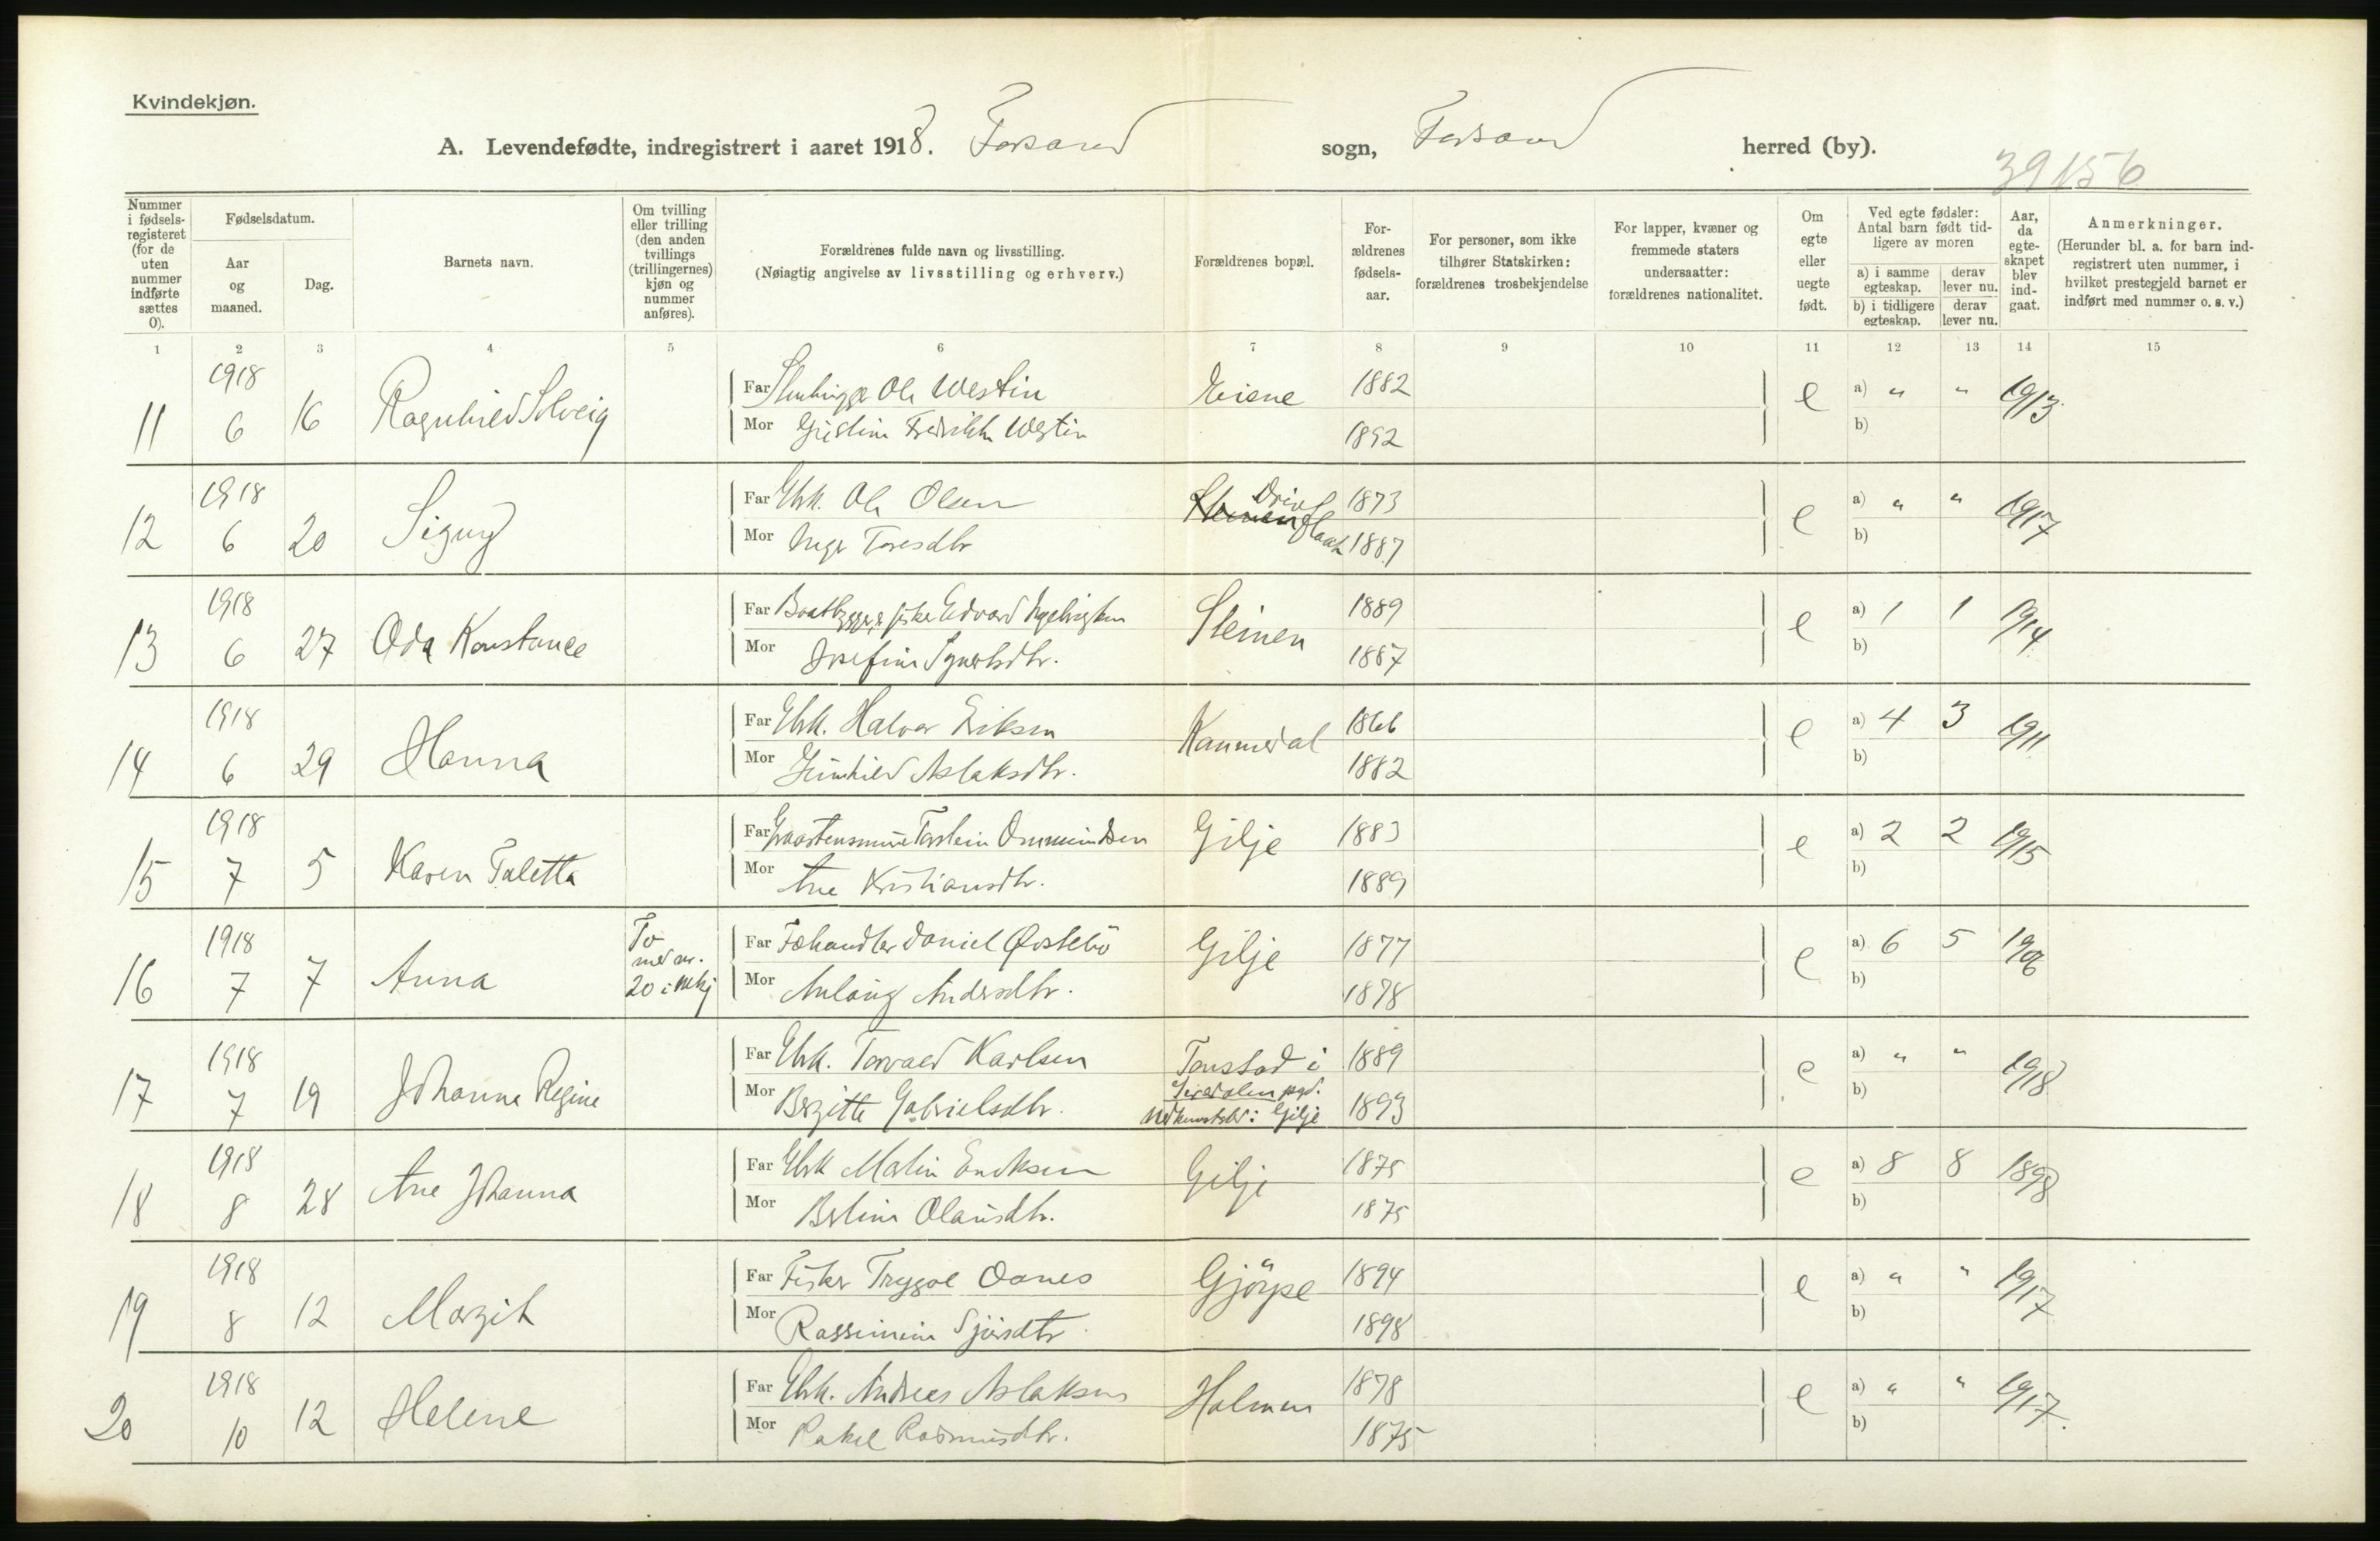 Kvindekjøn.
A. Levendefødte, indregistrert i aaret 1918. Forsand sogn, Forsand herred (by).
39156
Nummer i fødsels-registeret (for de uten nummer indførte sættes 0).
Fødselsdatum.
Aar og maaned.
Dag.
Barnets navn.
Om tvilling eller trilling (den anden tvillings (trillingernes) kjøn og nummer anføres).
Forældrenes fulde navn og livsstilling.
(Nøiagtig angivelse av livsstilling og erhverv.)
Forældrenes bopæl.
For-ældrenes fødsels-aar.
For personer, som ikke tilhører Statskirken: forældrenes trosbekjendelse
For lapper, kvæner og fremmede staters undersaatter: forældrenes nationalitet.
Om egte eller uegte født.
Ved egte fødsler: Antal barn født tid-ligere av moren
a) i samme egteskap.
derav lever nu.
b) i tidligere egteskap.
derav lever nu.
Aar, da egte-skapet blev ind-gaat.
Anmerkninger.
(Herunder bl. a. for barn ind-registrert uten nummer, i hvilket prestegjeld barnet er indført med nummer o. s. v.)
1 2 3 4 5 6 7 8 9 10 11 12 13 14 15
11 1918 6 16 Ragnhild Solveig Far Ole Westin 1882 e a) " " 1913
Mor Fredrikke Westin 1892 b)
12 1918 6 20 Signy Far Gbrk. Ole Olsen 1873 e a) " " 1917
Mor Inger Toresdtr 1887 b)
13 1918 6 27 Oda Konstance Far Baatbygger & fisker Edvard Ingebrigtsen Steinen 1889 e a) 1 1 1914
Mor Josefine Sjurtsdtr. 1887 b)
14 1918 6 29 Hanna Far Gbrk. Halvor Eriksen 1866 e a) 4 3 1911
Mor Gunhild Aslaksdtr. 1882 b)
15 1918 7 5 Karen Taletta Far Torstein Ommundsen Gilje 1883 e a) 2 2 1915
Mor Ane Kristiansdtr. 1889 b)
16 1918 7 7 Anna To med nr. 20 i mkj Far Fæhandler Daniel Østebö Gilje 1877 e a) 6 5 1906
Mor Anlaug Andersdtr. 1878 b)
17 1918 7 19 Johanne Regine Far Gbrk. Torvald Karlsen Tonstad i 1889 e a) " " 1918
Sirdalen pgd.
Mor Bergitte Gabrielsdtr. Nedkomststed: Gilje 1893 b)
18 1918 8 28 Ane Johanna Far Gbrk Martin Enoksen Gilje 1875 e a) 8 8 1898
Mor Bertine Olausdtr. 1875 b)
19 1918 8 12 Margit Far Fisker Trygve Oanes Gjöyse 1894 e a) " " 1917
Mor Rassimine Sjursdtr 1898 b)
20 1918 10 12 Helene Far Gbrk. Andreas Aslaksen Holmen 1878 e a) " " 1917.
Mor Rakel Rasmusdtr. 1875 b)